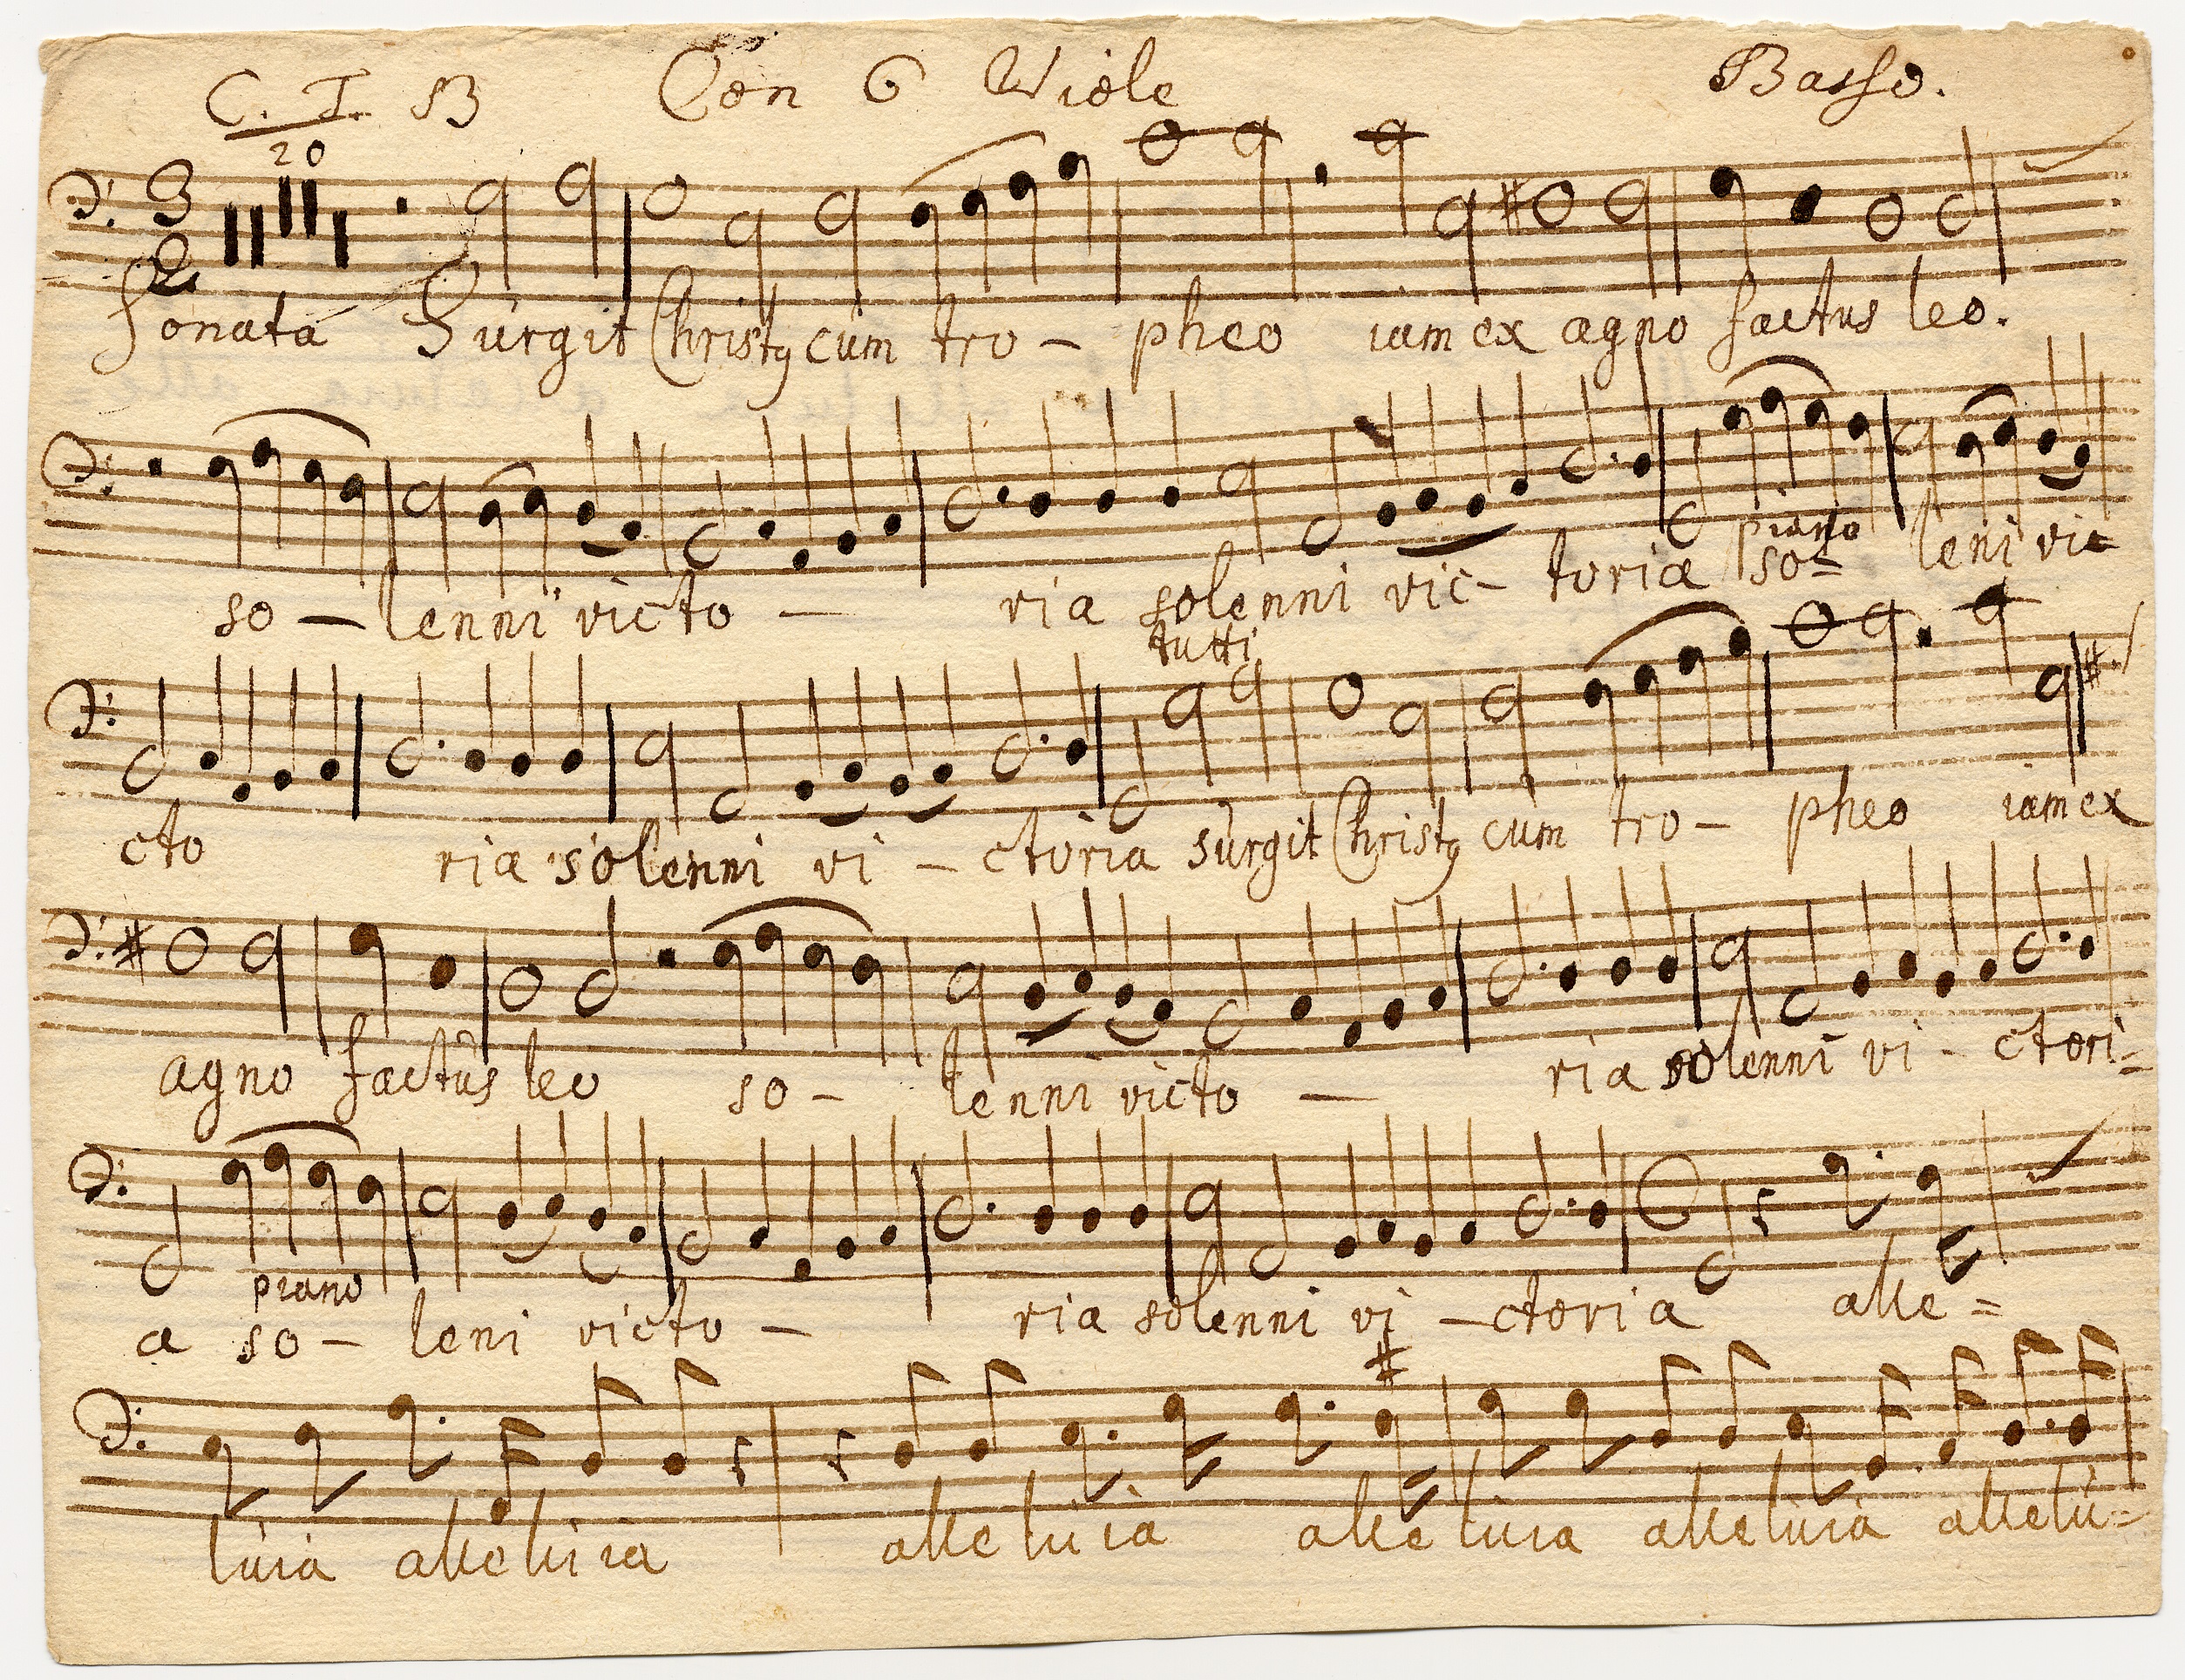 C. T. B Con 6 Viole Basso.
20
Sonata Surgit Christꝯ cum tro - pheo iam ex agno factus leo.
so - lenni victo - ria solenni vic - toria so - leni vic
piano
tutti
cto ria solenni vi - ctoria surgit Christꝯ cum tro - pheo iam ex
agno factus leo so - lenni victo - ria solenni vi - ctori=
piano
a so - leni victo - ria solenni vi - ctoria alle=
luia alleluia alleluia alleluia alleluia allelu=